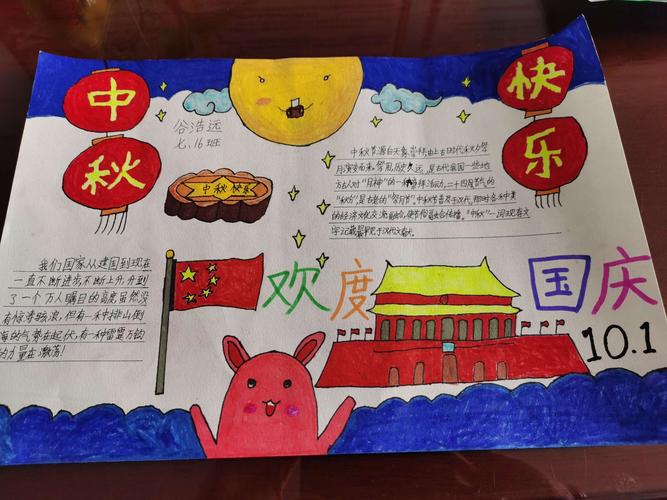 中秋
快乐
谷浩远
七.16班
中秋快乐
中秋节源自天象崇拜,由上古时代秋夕祭
月演变而来。祭月,历史久远,是古代我国一些地
方古人对“月神”的一种崇拜活动,二十四节气的
“秋分”,是古老的“祭月节”。中秋节普及于汉代,
的经济文化交流融合,使节俗融合传播。“中秋”一词现存文
字记载最早见于汉代文献。
我们国家从建国到现在
一直不断进步不断上升,升到
了一个万人瞩目的高度虽然没
有惊涛骇浪,但有一种排山倒
海的气势在起伏,有一种雷霆万钧
的力量在激荡!
欢度
国庆
10.1